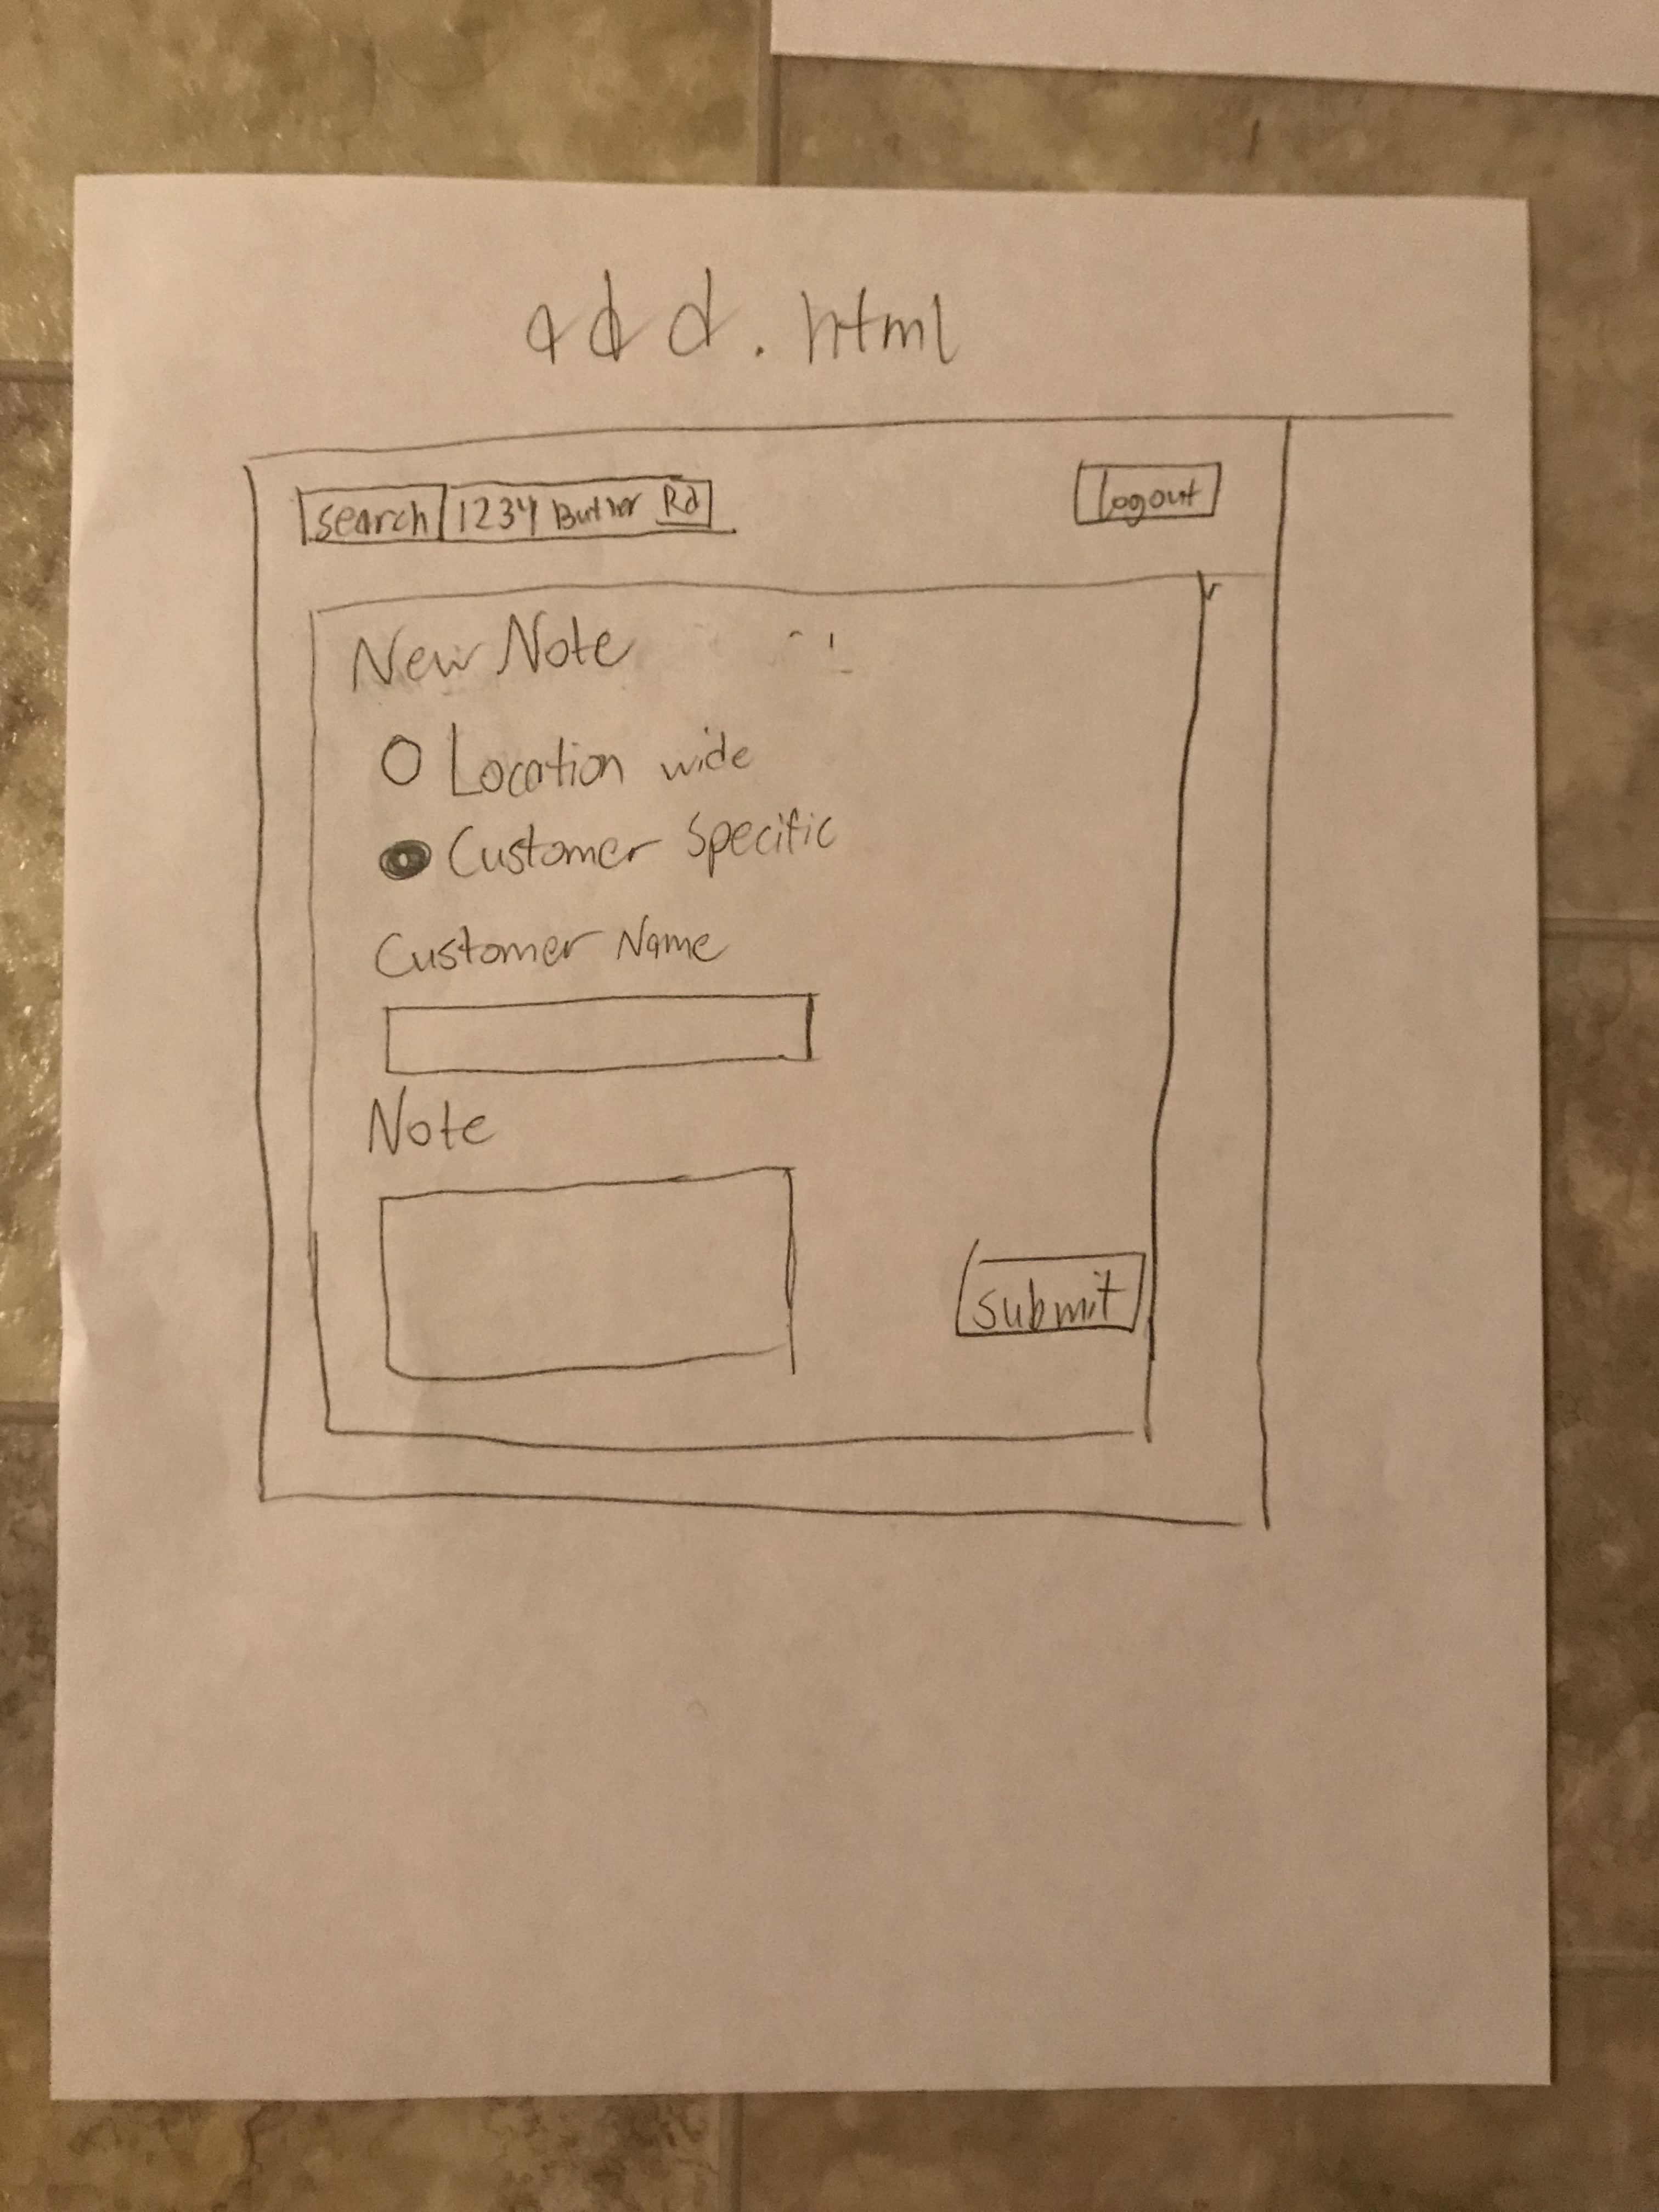 add.html
search 1234 Butler Rd logout
New Note
Location wide
Customer Specific
Customer Name
Note
submit